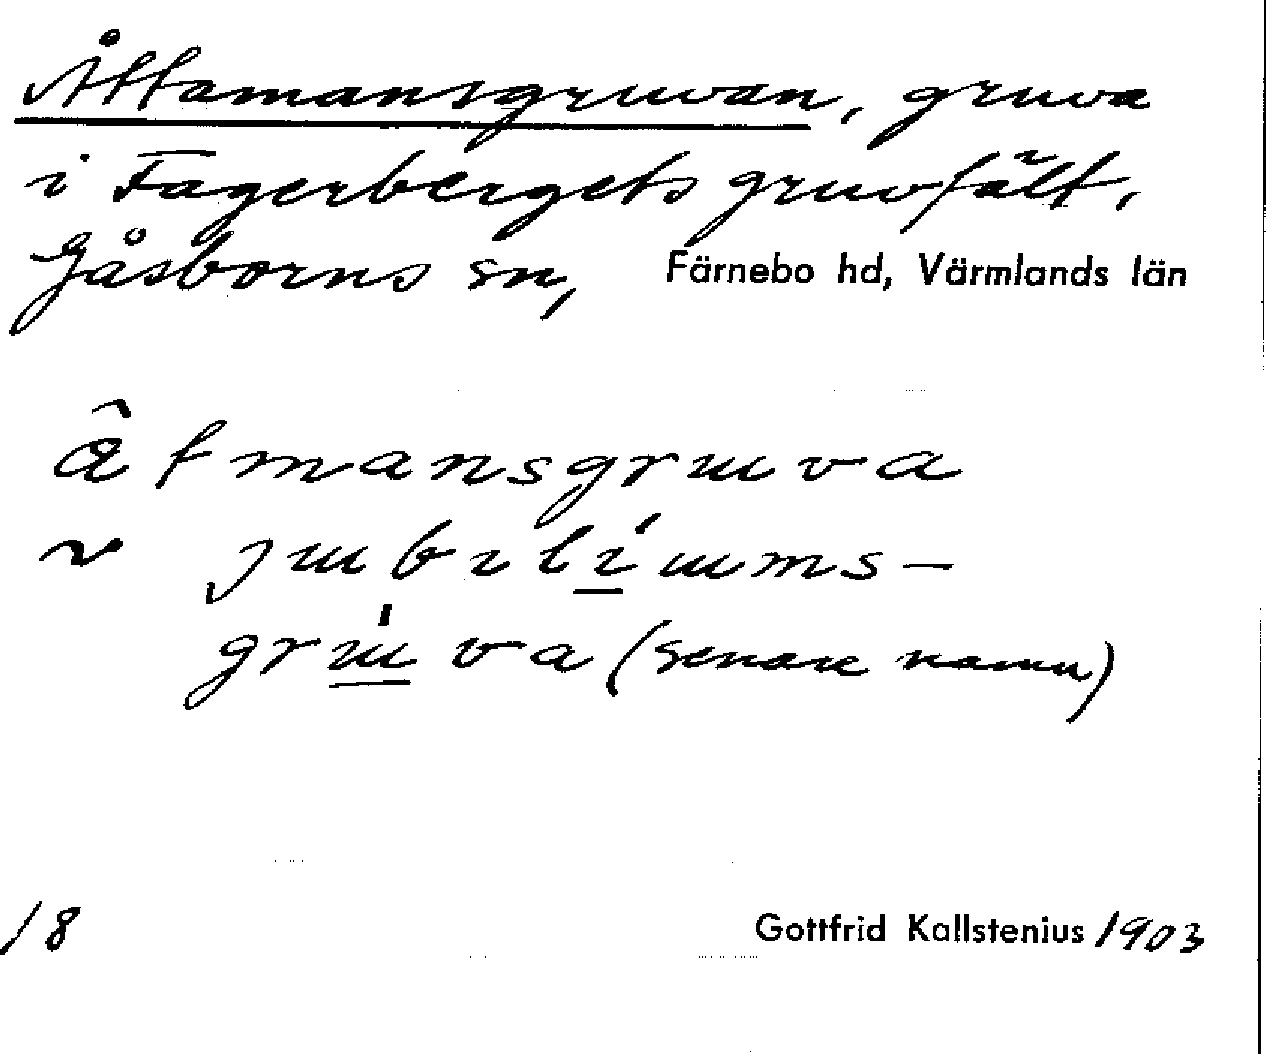 Åttamansgruvan, gruva
i Fagerbergets gruvfält,
Gåsborns sn, Färnebo hd, Värmlands län
âtmansgruva
~ jubiliumms-
gruva (senare namn)
18 Gottfrid Kallstenius 1903